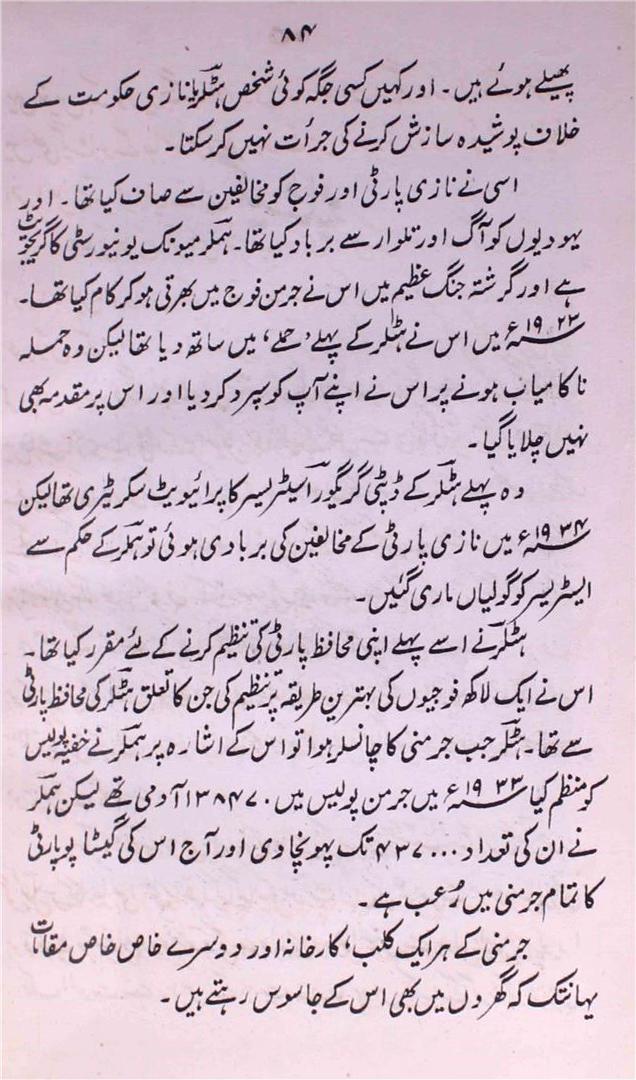 ۸۴
پھیلے ہوئے ہیں۔ اور کہیں کسی جگہ کوئی شخص ہٹلر یا نازی حکومت کے
خلاف پوشیدہ سازش کرنے کی جرأت نہیں کر سکتا۔
اسی نے نازی پارٹی اور فوج کو مخالفین سے صاف کیا تھا۔ اور
یہودیوں کو آگ اور تلوار سے برباد کیا تھا۔ ہملر میونک یونیورسٹی کا گریجویٹ
ہے اور گزشتہ جنگ عظیم میں اس نے جرمن فوج میں بھرتی ہو کر کام کیا تھا۔
۱۹۲۳ء میں اس نے ہٹلر کے پہلے ’حملے‘ میں ساتھ دیا تھا لیکن وہ حملہ
ناکامیاب ہونے پر اس نے اپنے آپ کو سپرد کر دیا اور اس پر مقدمہ بھی
نہیں چلایا گیا۔
وہ پہلے ہٹلر کے ڈپٹی گریگور اسیٹریسر کا پرائیویٹ سکرٹیری تھا لیکن
۱۹۳۴ء میں نازی پارٹی کے مخالفین کی بربادی ہوئی تو ہملر کے حکم سے
ایسٹریسر کو گولیاں ماری گئیں۔
ہٹلر نے اسے پہلے اپنی محافظ پارٹی کی تنظیم کرنے کے لئے مقرر کیا تھا۔
اس نے ایک لاکھ فوجیوں کی بہترین طریقہ پر تنظیم کی جن کا تعلق ہٹلر کی محافظ پارٹی
سے تھا۔ ہٹلر جب جرمنی کا چانسلر ہوا تو اس کے اشارہ پر ہملر نے خفیہ پولیس
کو منظم کیا ۱۹۳۳ء میں جرمن پولیس میں ۱۳۸۴۷۰ آدمی تھے لیکن ہملر
نے ان کی تعداد ۴۳۷۰۰۰ تک پہونچا دی اور آج اس کی گیسٹاپو پارٹی
کا تمام جرمنی میں رُعب ہے۔
جرمنی کے ہر ایک کلب، کارخانہ اور دوسرے خاص خاص مقامات
یہانتک کہ گھروں میں بھی اس کے جاسوس رہتے ہیں۔